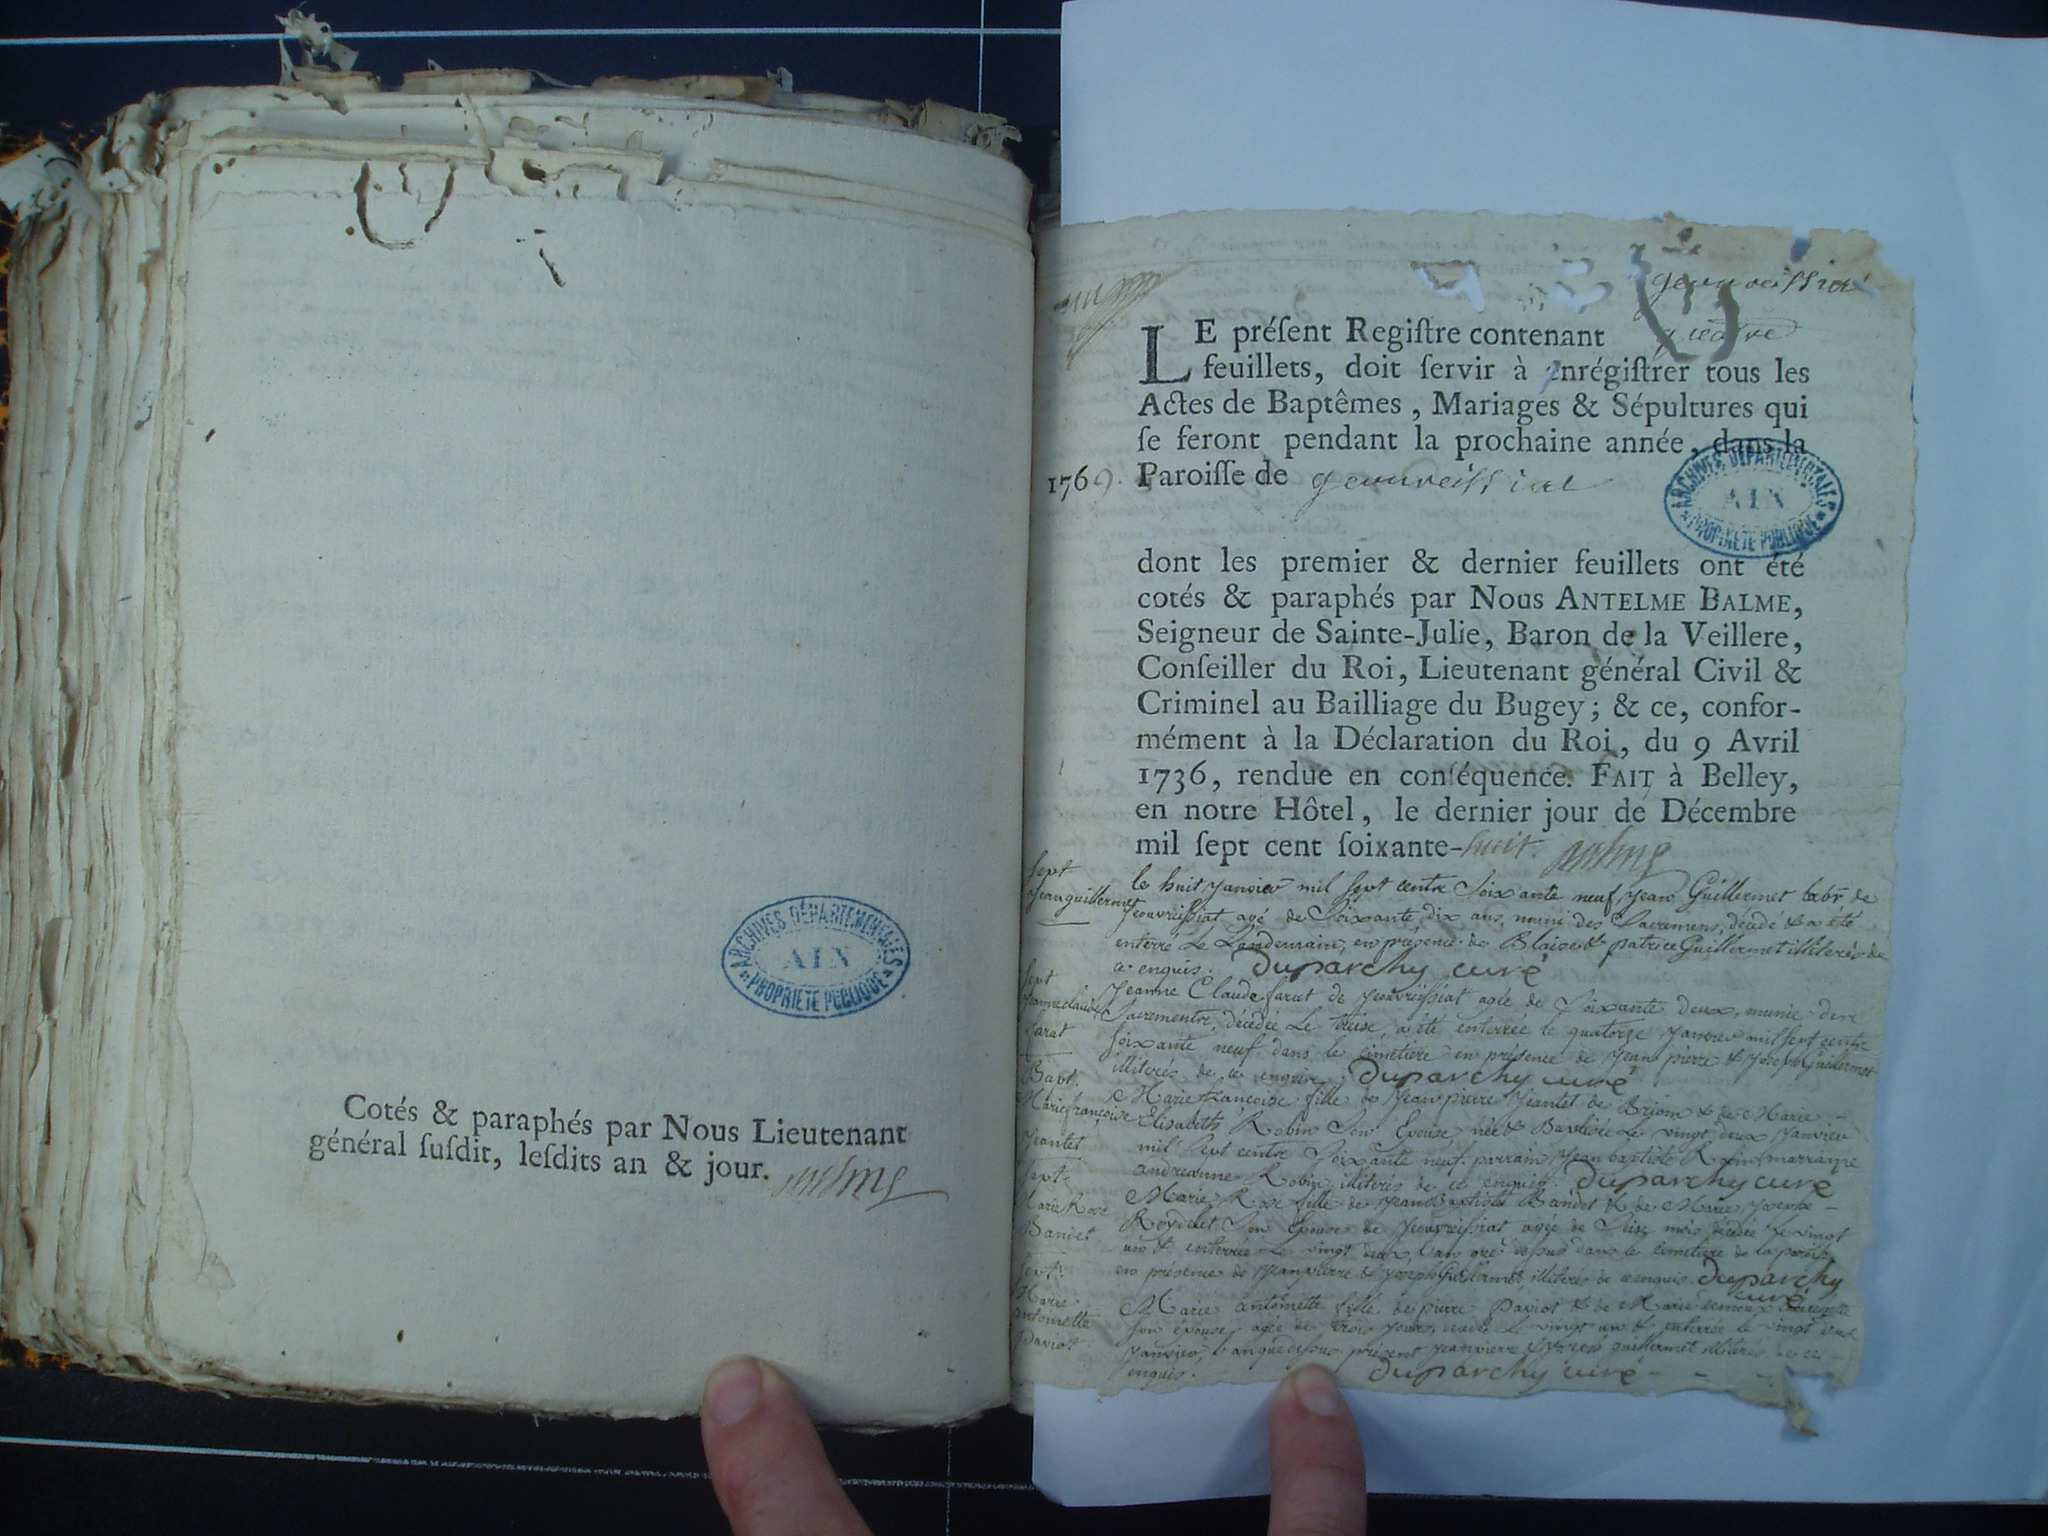 Cotés & paraphés par Nous Lieutenant
général ſuſdit, leſdits an & jour.
ARCHIVES DÉPARTEMENTALES
AIN
PROPRIÉTÉ PUBLIQUE
geouveissiat
LE préſent Regiſtre contenant quatre
feuillets, doit ſervir à enrégiſtrer tous les
Actes de Baptêmes, Mariages & Sépultures qui
ſe feront pendant la prochaine année, dans la
1769. Paroiſſe de geouveissiat
ARCHIVES DÉPARTEMENTALES
AIN
PROPRIÉTÉ PUBLIQUE
dont les premier & dernier feuillets ont été
cotés & paraphés par Nous ANTELME BALME,
Seigneur de Sainte-Julie, Baron de la Veillere,
Conſeiller du Roi, Lieutenant général Civil &
Criminel au Bailliage du Bugey; & ce, confor-
mément à la Déclaration du Roi, du 9 Avril
1736, rendue en conſéquence. FAIT à Belley,
en notre Hôtel, le dernier jour de Décembre
mil ſept cent ſoixante-huit.
Sept
Jean guillermet
le huit janvier mil sept cents soixante neuf, jean Guillermet labr de
jeouvreissiat agé de soixante dix ans, muni des sacremens, décédé & a été
enterré le lendemain, en présence de Blaise & patrice Guillermet illiterés de
ce enquis. Duparchy curé
Sept
jeanne claude
farat
jeanne Claude farat de jeouvreissiat agée de soixante deux, munie des
sacrements, décédée le treise, a été enterrée le quatorze janvier mil sept cents
soixante neuf dans le cimetiere en présence de jean pierre & joseph Guillermet
illiterés de ce enquis. Duparchy curé
Bapt.
Marie françoise
jeantet
Marie françoise fille de jean pierre jeantet de Brion & de Marie
Elisabeth Robin son Epouse, née & Baptisée le vingt deux janvier
mil sept cents soixante neuf. parrain jean baptiste Robin, marraine
andreanne Robin illiterés de ce enquis. Duparchy curé
Sept.
Marie Rose
Bandet
Marie Rose fille de jean Baptiste Bandet & de Marie josephe
son Epouse de jeouvreissiat agée de seize mois décédée le vingt
un & enterrée le vingt deux, l'an que dessus dans le cimetiere de la paroisse
en présence de jean pierre & joseph Guillermet illiterés de ce enquis. Duparchy
curé
Sept.
Marie
antoinette
paviot
Marie antoinette fille de pierre paviot & de Marie
son épouse, agée de trois jours, le vingt un & enterrée le vingt deux
janvier, l'an que dessus présent jean pierre & guillermet illiterés de ce
enquis. Duparchy curé